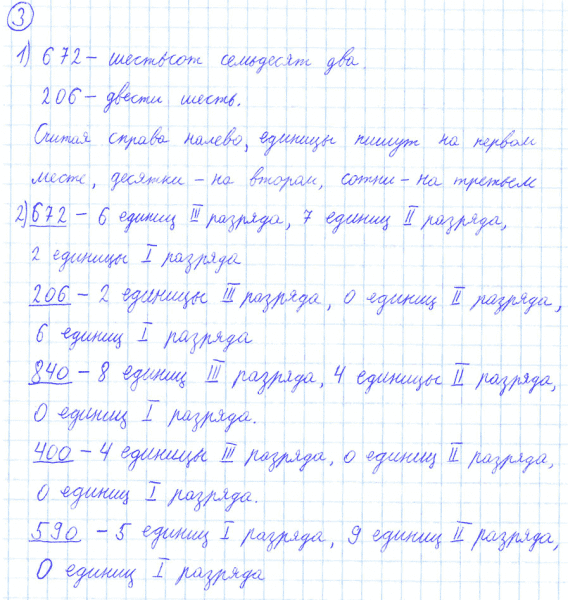 3
1) 672 – шестьсот семьдесят два.
206 – двести шесть.
Считая справа налево, единицы пишут на первом
месте, десятки – на втором, сотни – на третьем
2) 672 – 6 единиц III разряда, 7 единиц II разряда,
2 единицы I разряда
206 – 2 единицы III разряда, 0 единиц II разряда,
6 единиц I разряда
840 – 8 единиц III разряда, 4 единицы II разряда,
0 единиц I разряда.
400 – 4 единицы III разряда, 0 единиц II разряда,
0 единиц I разряда.
590 – 5 единиц I разряда, 9 единиц II разряда,
0 единиц I разряда